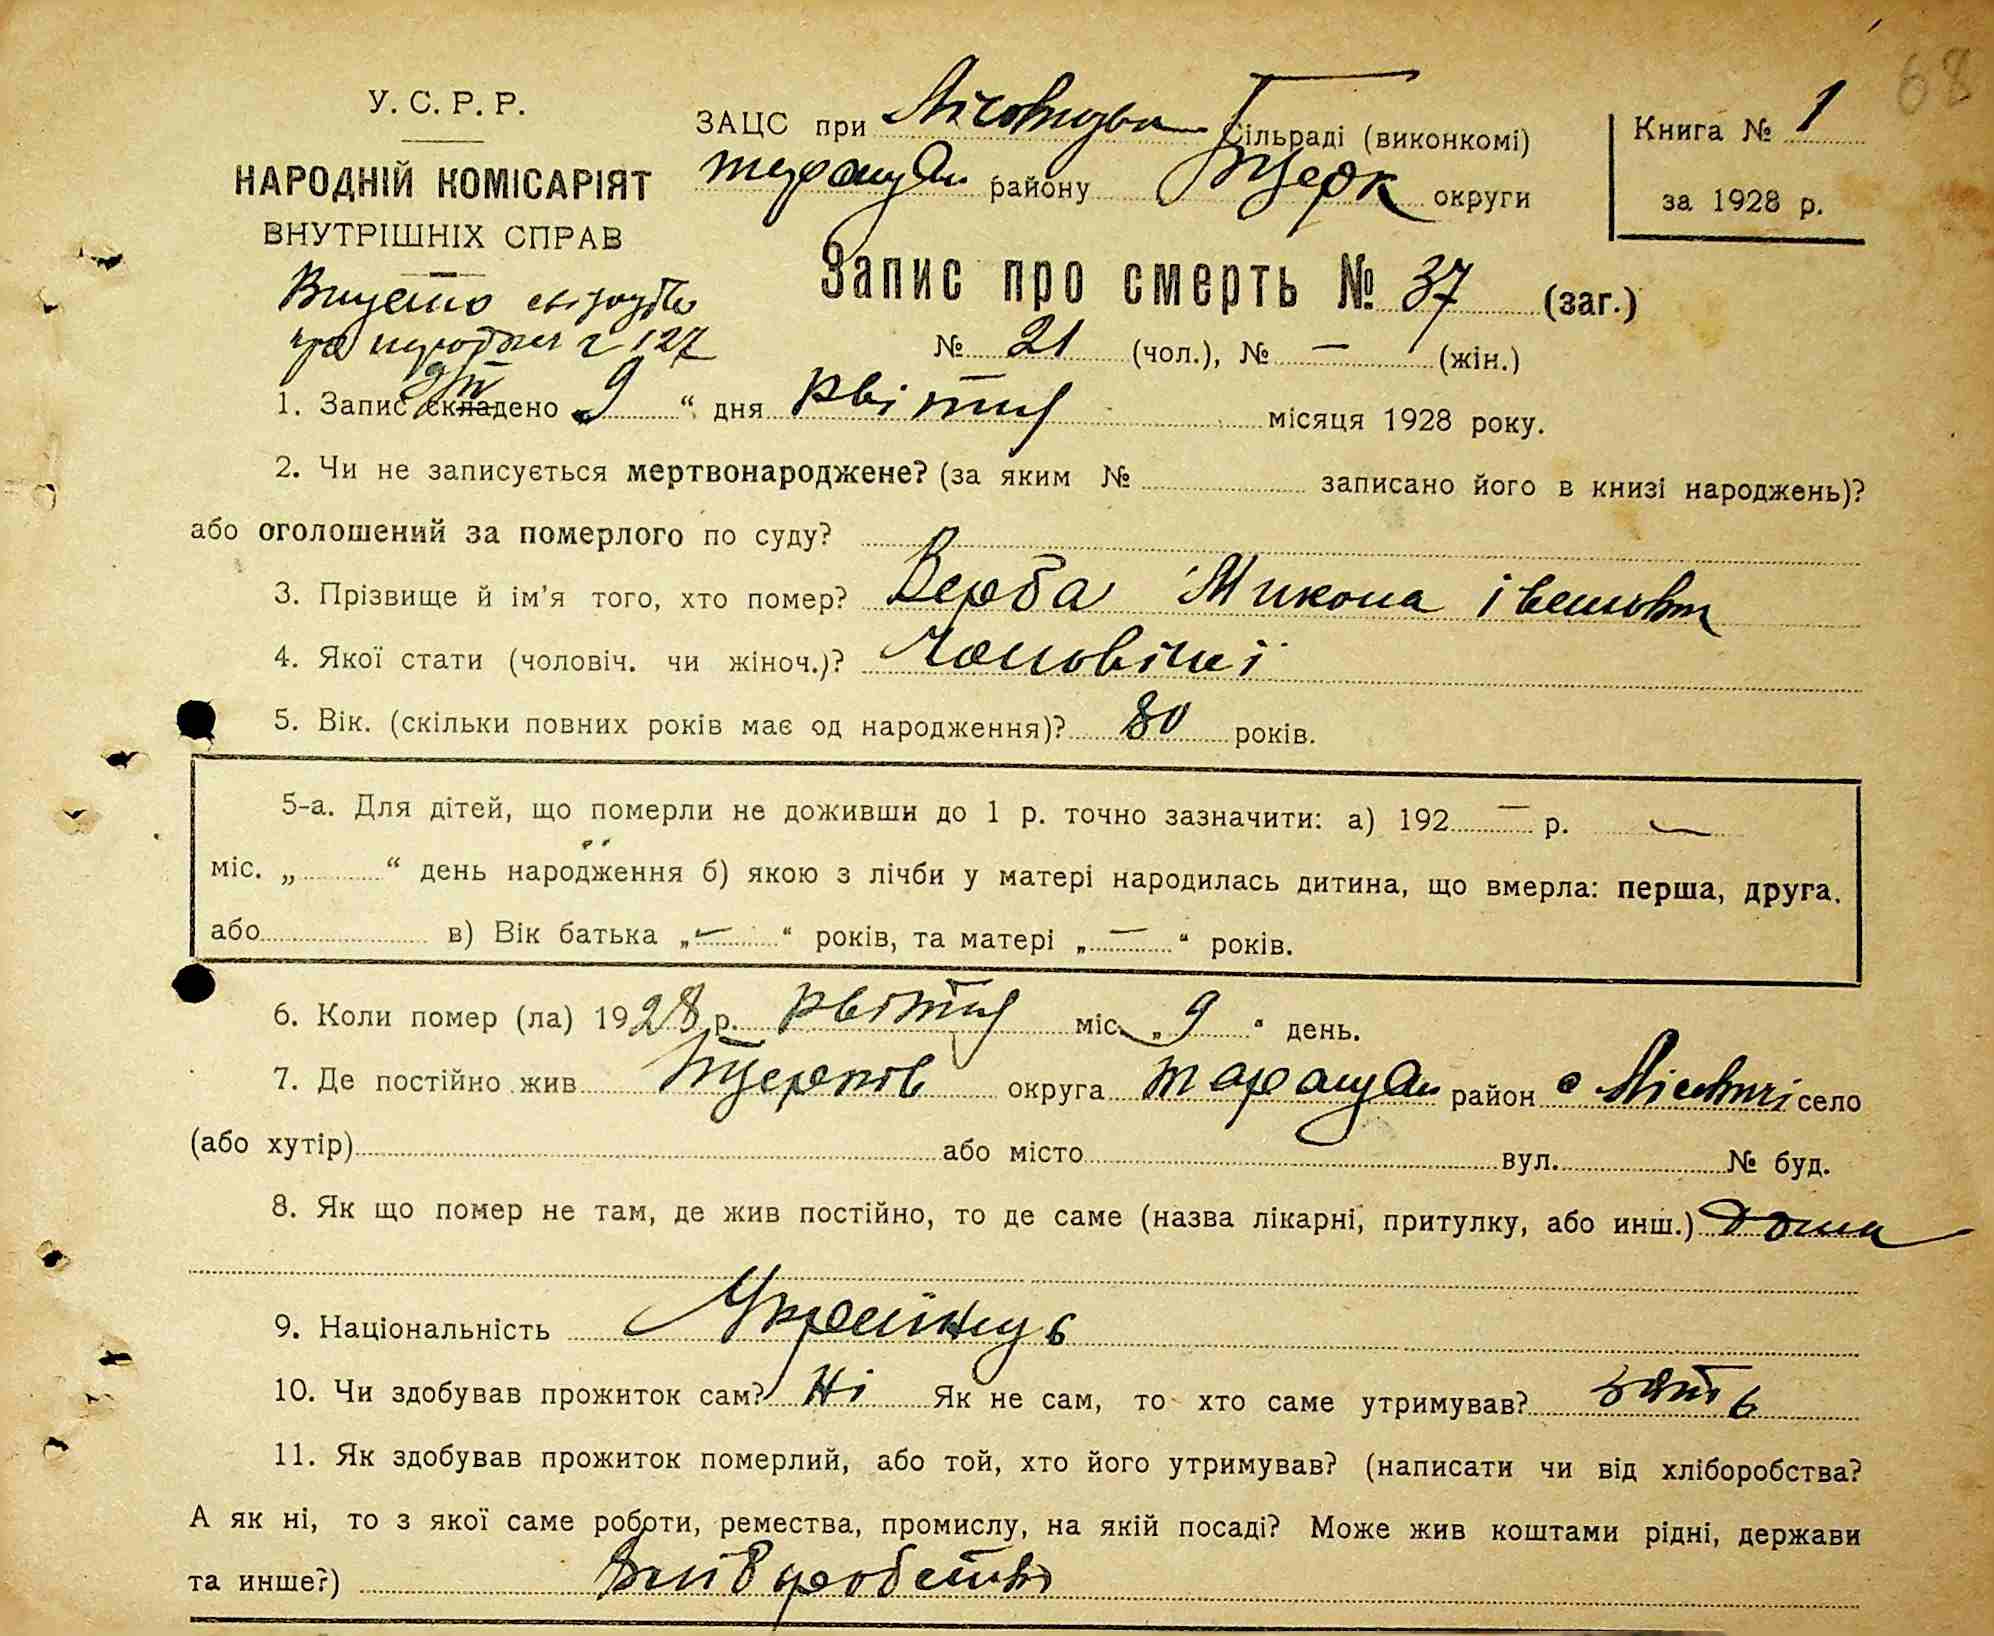 68
У. С. Р. Р.
НАРОДНІЙ КОМІСАРІЯТ
ВНУТРІШНІХ СПРАВ
ЗАЦС при Лісовицька Сільраді (виконкомі)
Таращан району БЦерк округи
Книга № 1
за 1928 р.
Запис про смерть № 37 (заг.)
№ 21 (чол.), № — (жін.)
1. Запис складено „9“ дня квітня місяця 1928 року.
2. Чи не записується мертвонароджене? (за яким № записано його в книзі народжень)?
або оголошений за померлого по суду?
3. Прізвище й ім'я того, хто помер? Верба Микола Іванович
4. Якої стати (чоловіч. чи жіноч.)? Чоловічі
5. Вік. (скільки повних років має од народження)? 80 років.
5-а. Для дітей, що померли не доживши до 1 р. точно зазначити: а) 192 — р. —
міс. „ “ день народження б) якою з лічби у матері народилась дитина, що вмерла: перша, друга.
або в) Вік батька „—“ років, та матері „—“ років.
6. Коли помер (ла) 1928 р. квітня міс. „9“ день.
7. Де постійно жив БЦерків округа Таращан район с Лісовичі село
(або хутір) або місто вул. № буд.
8. Як що помер не там, де жив постійно, то де саме (назва лікарні, притулку, або инш.) дома
9. Національність Українець
10. Чи здобував прожиток сам? Ні Як не сам, то хто саме утримував? зять
11. Як здобував прожиток померлий, або той, хто його утримував? (написати чи від хліборобства?
А як ні, то з якої саме роботи, ремества, промислу, на якій посаді? Може жив коштами рідні, держави
та инше?)